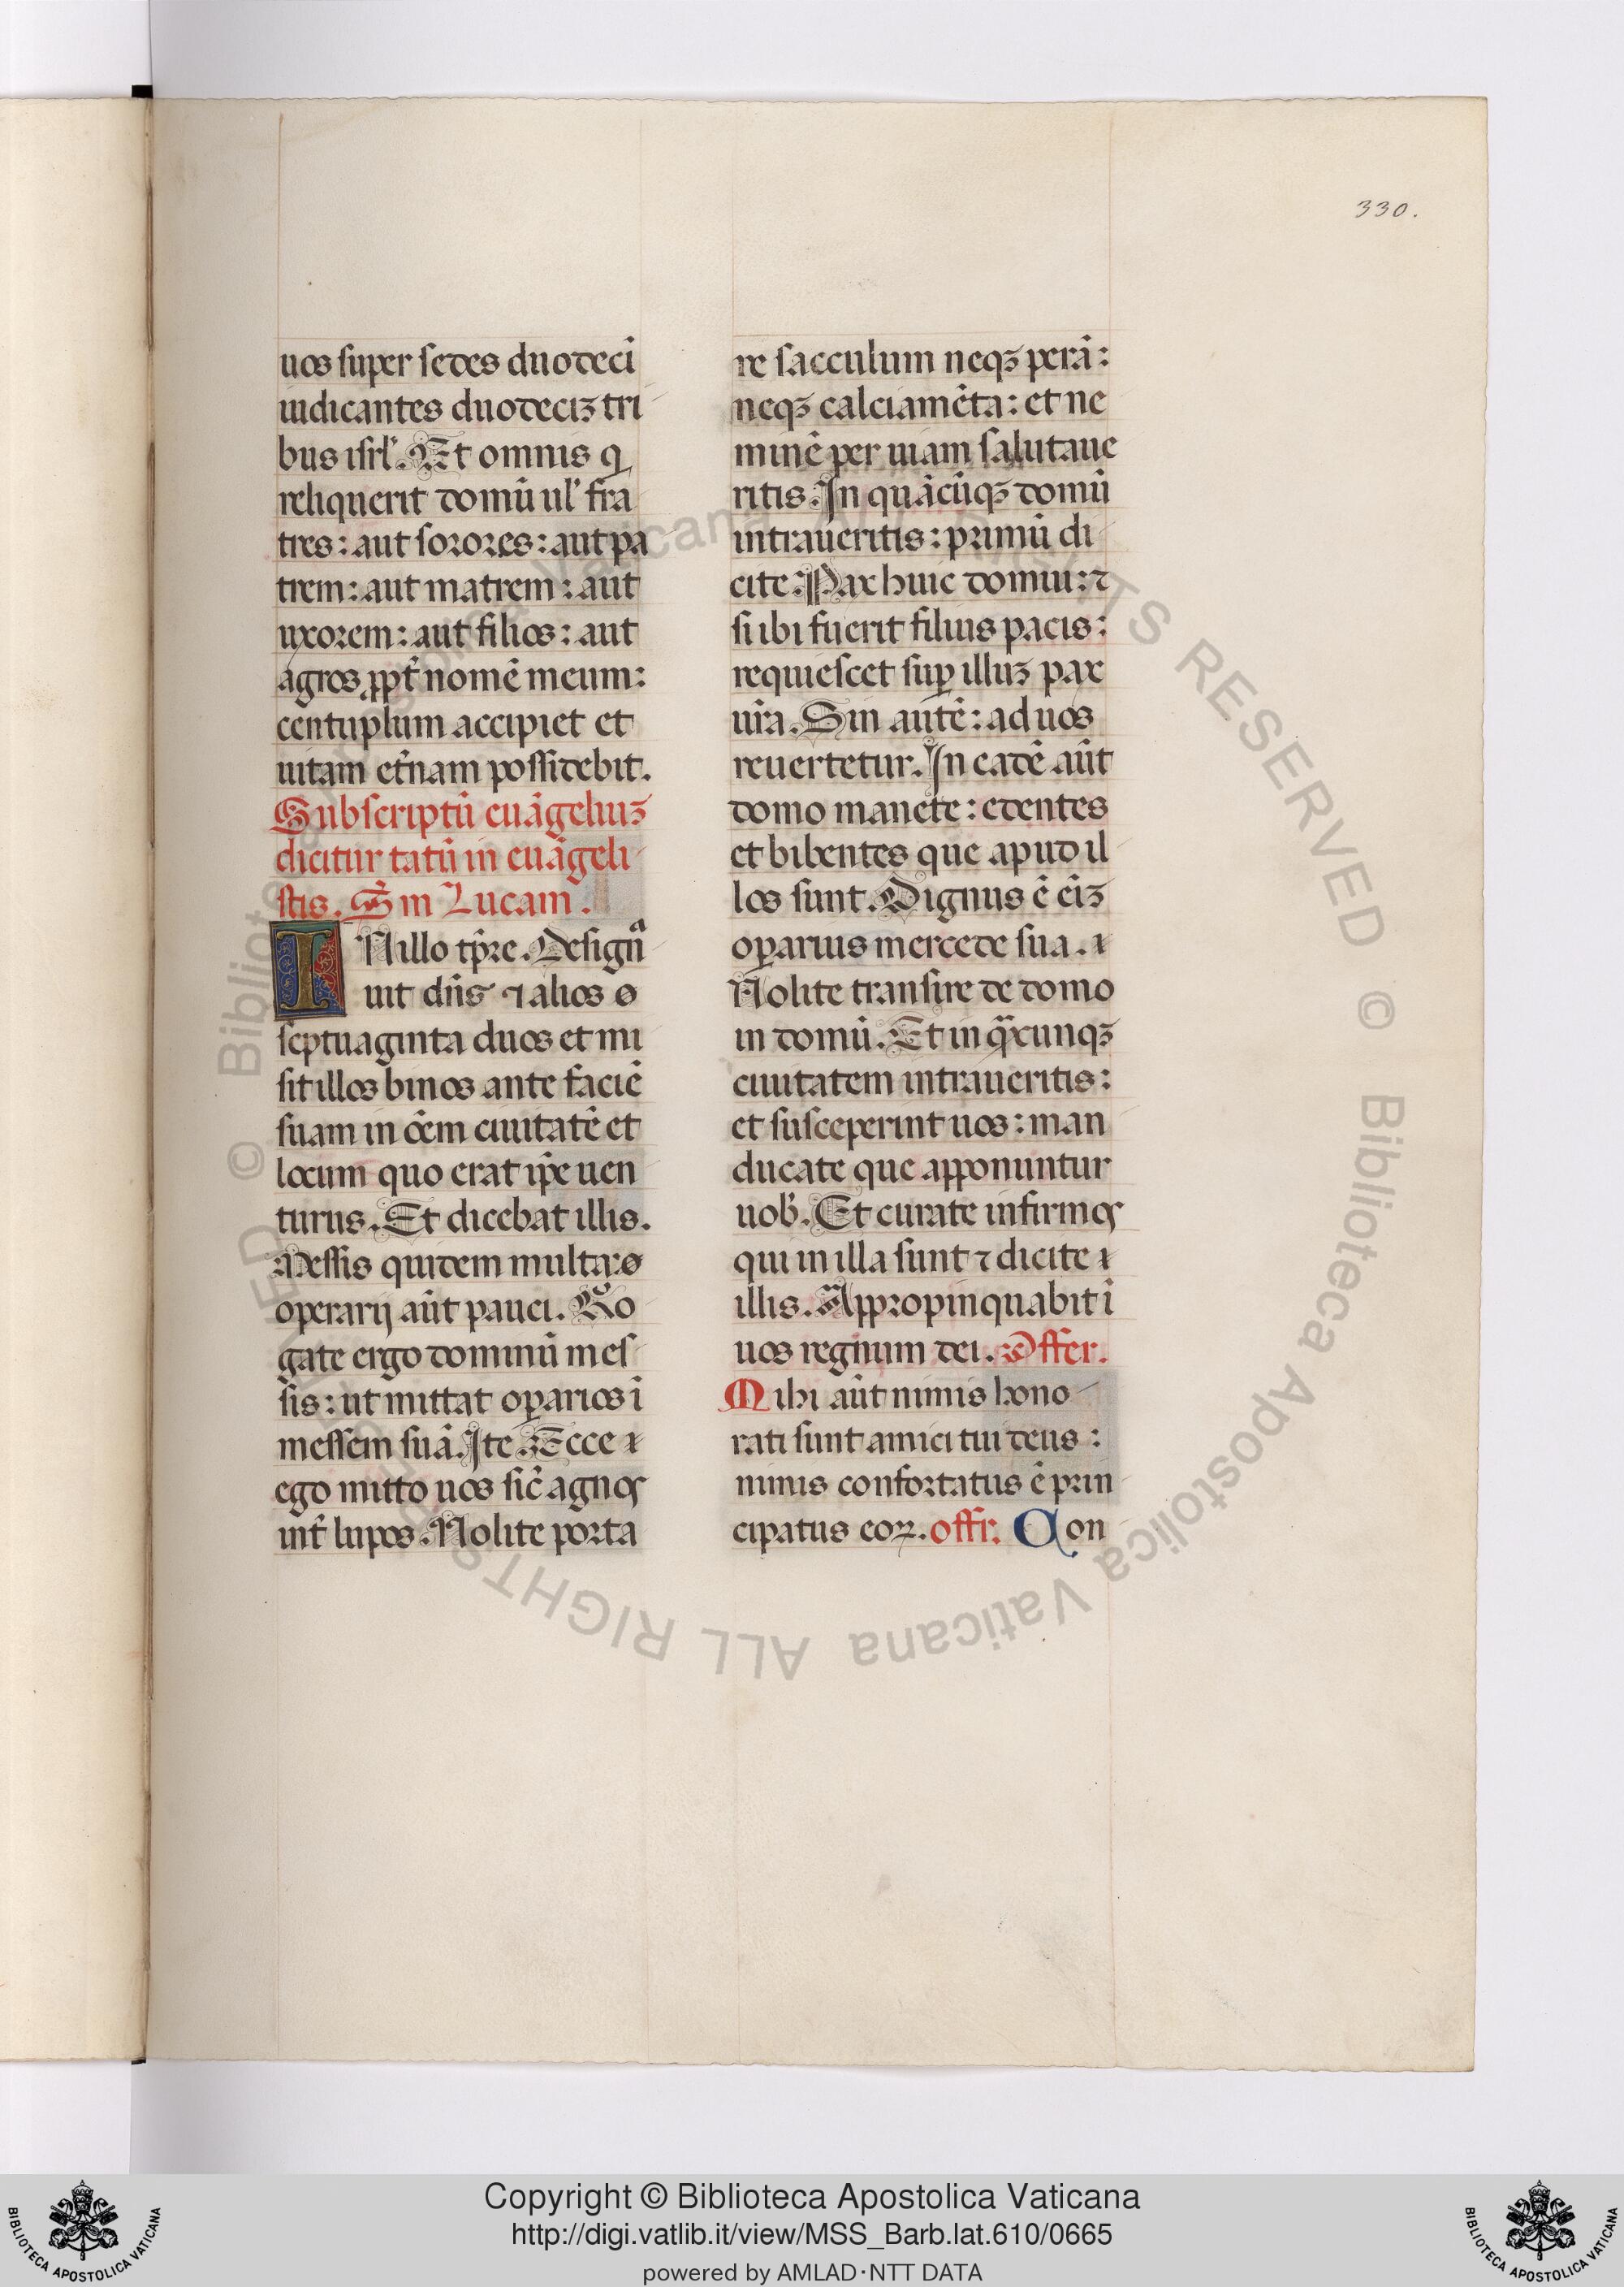 330.
uos super sedes duodecī
iudicantes duodeciz tri
bus isrl'. Et omnis q
reliquerit domū ul' fra
tres: aut sorores: aut pa
trem: aut matrem: aut
uxorem: aut filios: aut
agros ꝓpt̄ nomē meum:
centuplum accipiet et
uitam et̄nam possidebit.
Subscriptū euāgeliuz
dicitur tatū in euāgeli
stis. S̄m Lucam.
IN illo tp̄re. Designa
uit dn̄s ⁊ alios
septuaginta duos et mi
sit illos binos ante faciē
suam in oēm ciuitatē et
locum quo erat ip̄e uen
turus. Et dicebat illis.
Messis quidem multa:
operarij aūt pauci. Ro
gate ergo dominū mes
sis: ut mittat oꝑarios ī
messem suā. Ite. Ecce
ego mitto uos sic̄ agnos
int̄ lupos. Nolite porta
re sacculum neqꝫ perā:
neqꝫ calciamēta: et ne
minē per uiam salutaue
ritis. In quācūqꝫ domū
intraueritis: primū di
cite: Pax huic domui: ⁊
si ibi fuerit filius pacis:
requiescet suꝑ illuz pax
ur̄a. Sin autē: ad uos
reuertetur. In eadē aūt
domo manete: edentes
et bibentes que apud il
los sunt. Dignus ē ei̅z
oꝑarius mercede sua.
Nolite transire de domo
in domū. Et in qᷓcunqꝫ
ciuitatem intraueritis:
et susceperint uos: man
ducate que apponuntur
uob'. Et curate infirmos
qui in illa sunt ⁊ dicite
illis. Appropinquabit ī
uos regnum dei. Offer.
Mihi aūt nimis hono
rati sunt amici tui deus:
nimis confortatus ē prin
cipatus eoꝝ. offr. Con
© Biblioteca Apostolica Vaticana ALL RIGHTS RESERVED © Biblioteca Apostolica Vaticana ALL RIGHTS RESERVED
Copyright © Biblioteca Apostolica Vaticana
http://digi.vatlib.it/view/MSS_Barb.lat.610/0665
powered by AMLAD·NTT DATA
BIBLIOTECA APOSTOLICA VATICANA
BIBLIOTECA APOSTOLICA VATICANA